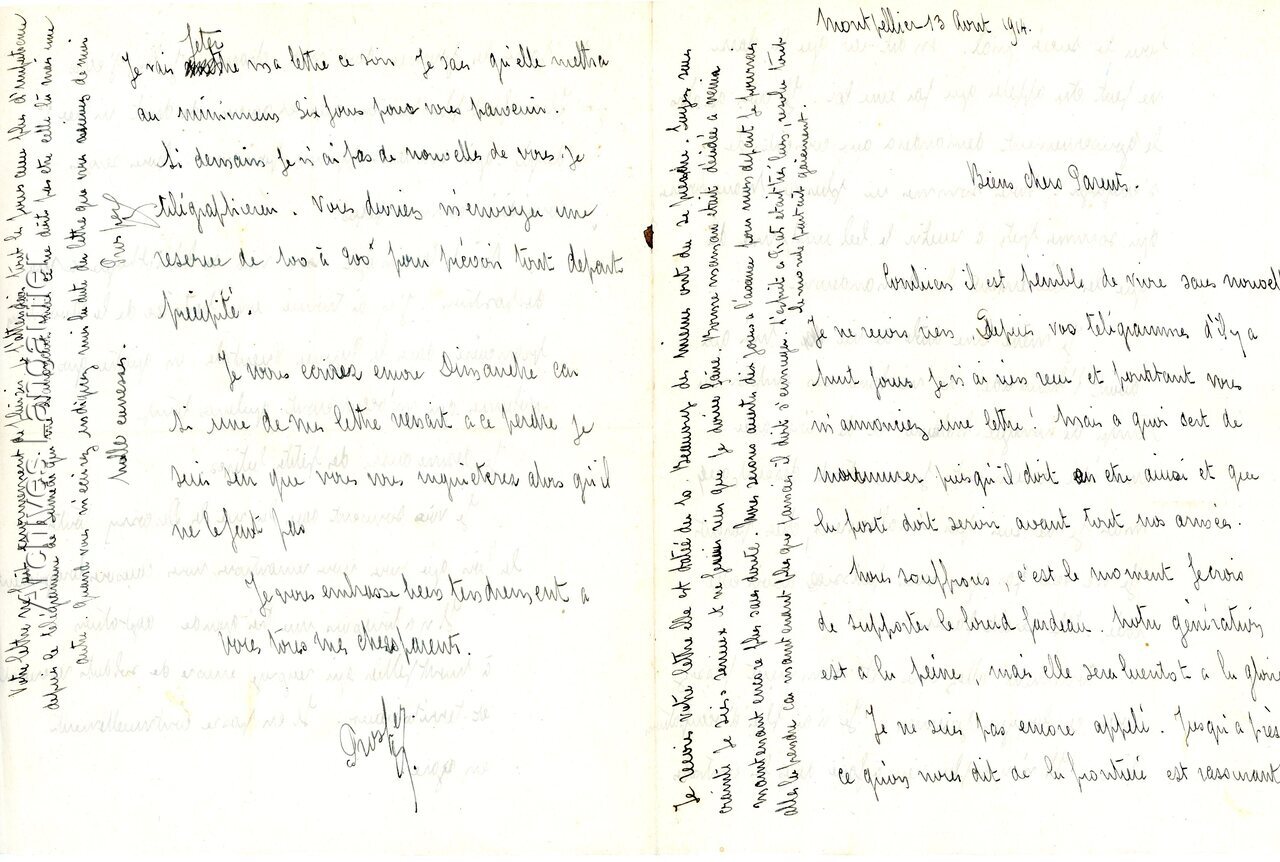 Montpellier 13 Aout 1914.
Biens chers Parents.
Combien il est penible de vivre sans nouvel
Je ne recois rien. Depuis vos télégrammes d'il y a
huit jours je n'ai rien reçu et pourtant vous
m'annonciez une lettre! Mais a quoi sert de
murmurer puisqu'il doit en etre ainsi et que
la poste doit servir avant tout nos armées.
Nous souffrons, c'est le moment je crois
de supporter le lourd fardeau. Notre génération
est a la peine, mais elle sera bientot a la gloire
Je ne suis pas encore appelé. Jusqu'a près
ce qu'on nous dit de la frontière est rassurant
Je recois votre lettre elle est datée du 10. Beaucoup des mienes ont du se perdre. Soyez sans
crainte je suis serieux et ne ferai rien que je puisse faire. Bonne maman était décidée a venir
maintenant encore plus sans doute. Nous serons avertis dix jours a l'avance pour mon depart je pourrais
aller la prendre car maintenant plus que jamais il doit s'ennuyer. L'esprit a était très bon, resolu tout
le monde partait gaiement.
Je vais jeter ma lettre ce soir Je sais qu'elle mettra
au minimum six jours pour vous parvenir.
Si demain je n'ai pas de nouvelles de vous. Je
télégraphierai. Vous devriez m'envoyer une
reserve de 100 à 200f pour prévoir tout depart
précipité.
Je vous ecrirez encore Dimanche car
si une de mes lettre venait a ce perdre je
suis sur que vous vous inquieterez alors qu'il
ne le faut pas
Je vous embrasse bien tendrement a
vous tous mes chers parents.
Prosper
Votre lettre me fait enormement de plaisir je l'attendais tout le jour avec plus d'impatience
depuis le télégramme de
autre Quand vous m'ecrivez indiquez moi la date du lettre que vous recevez de moi
Mille caresses. Prosper
Archives Landauler